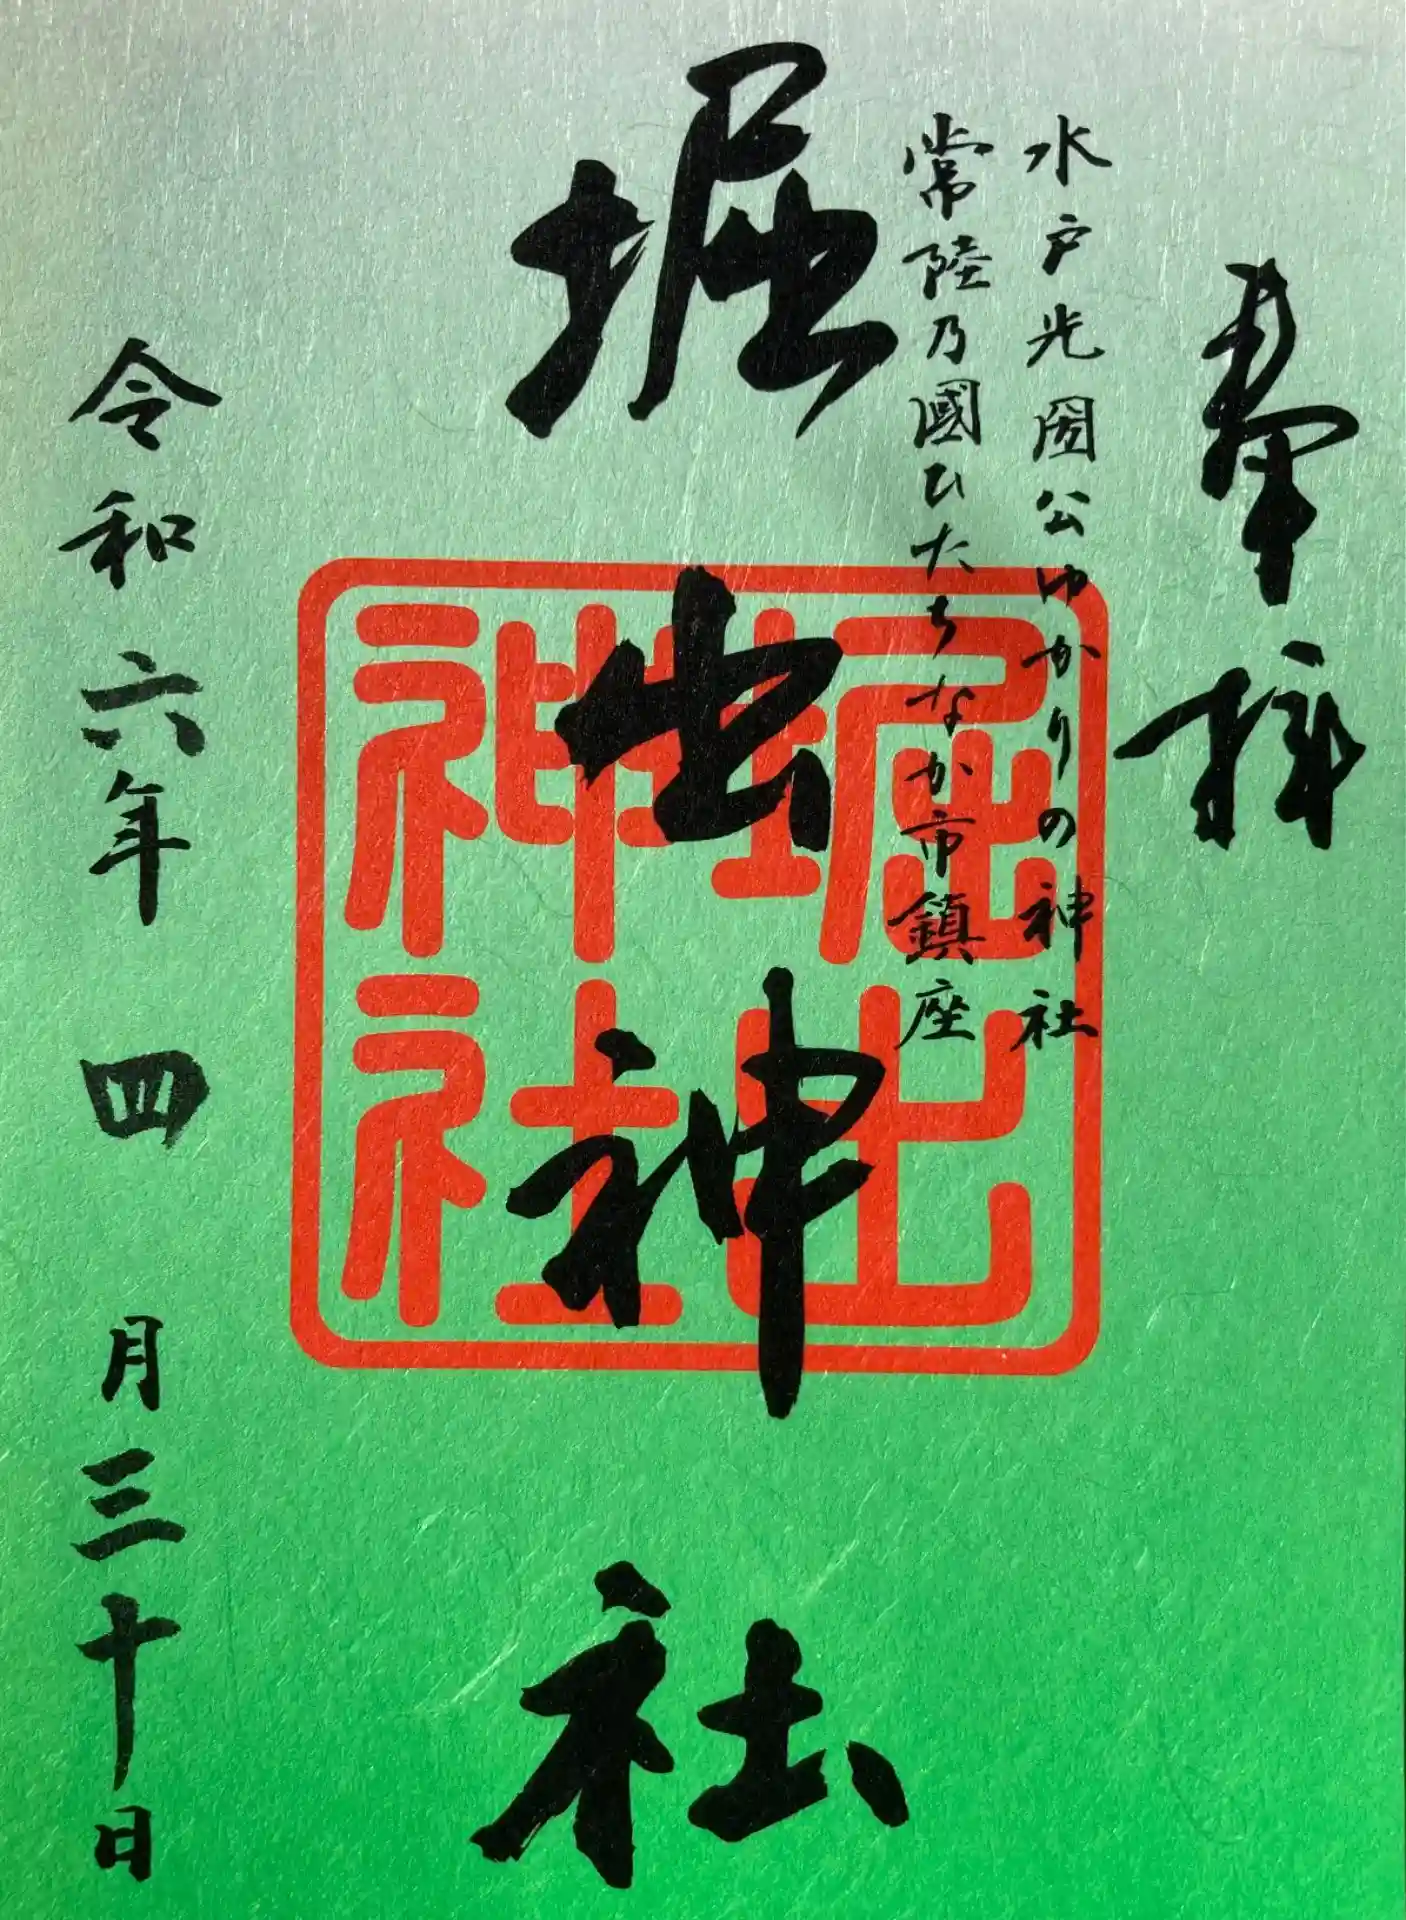 奉拝
水戸光圀公ゆかりの神社
常陸乃國ひたちなか市鎮座
堀出神社
堀出神社
令和六年四月三十日